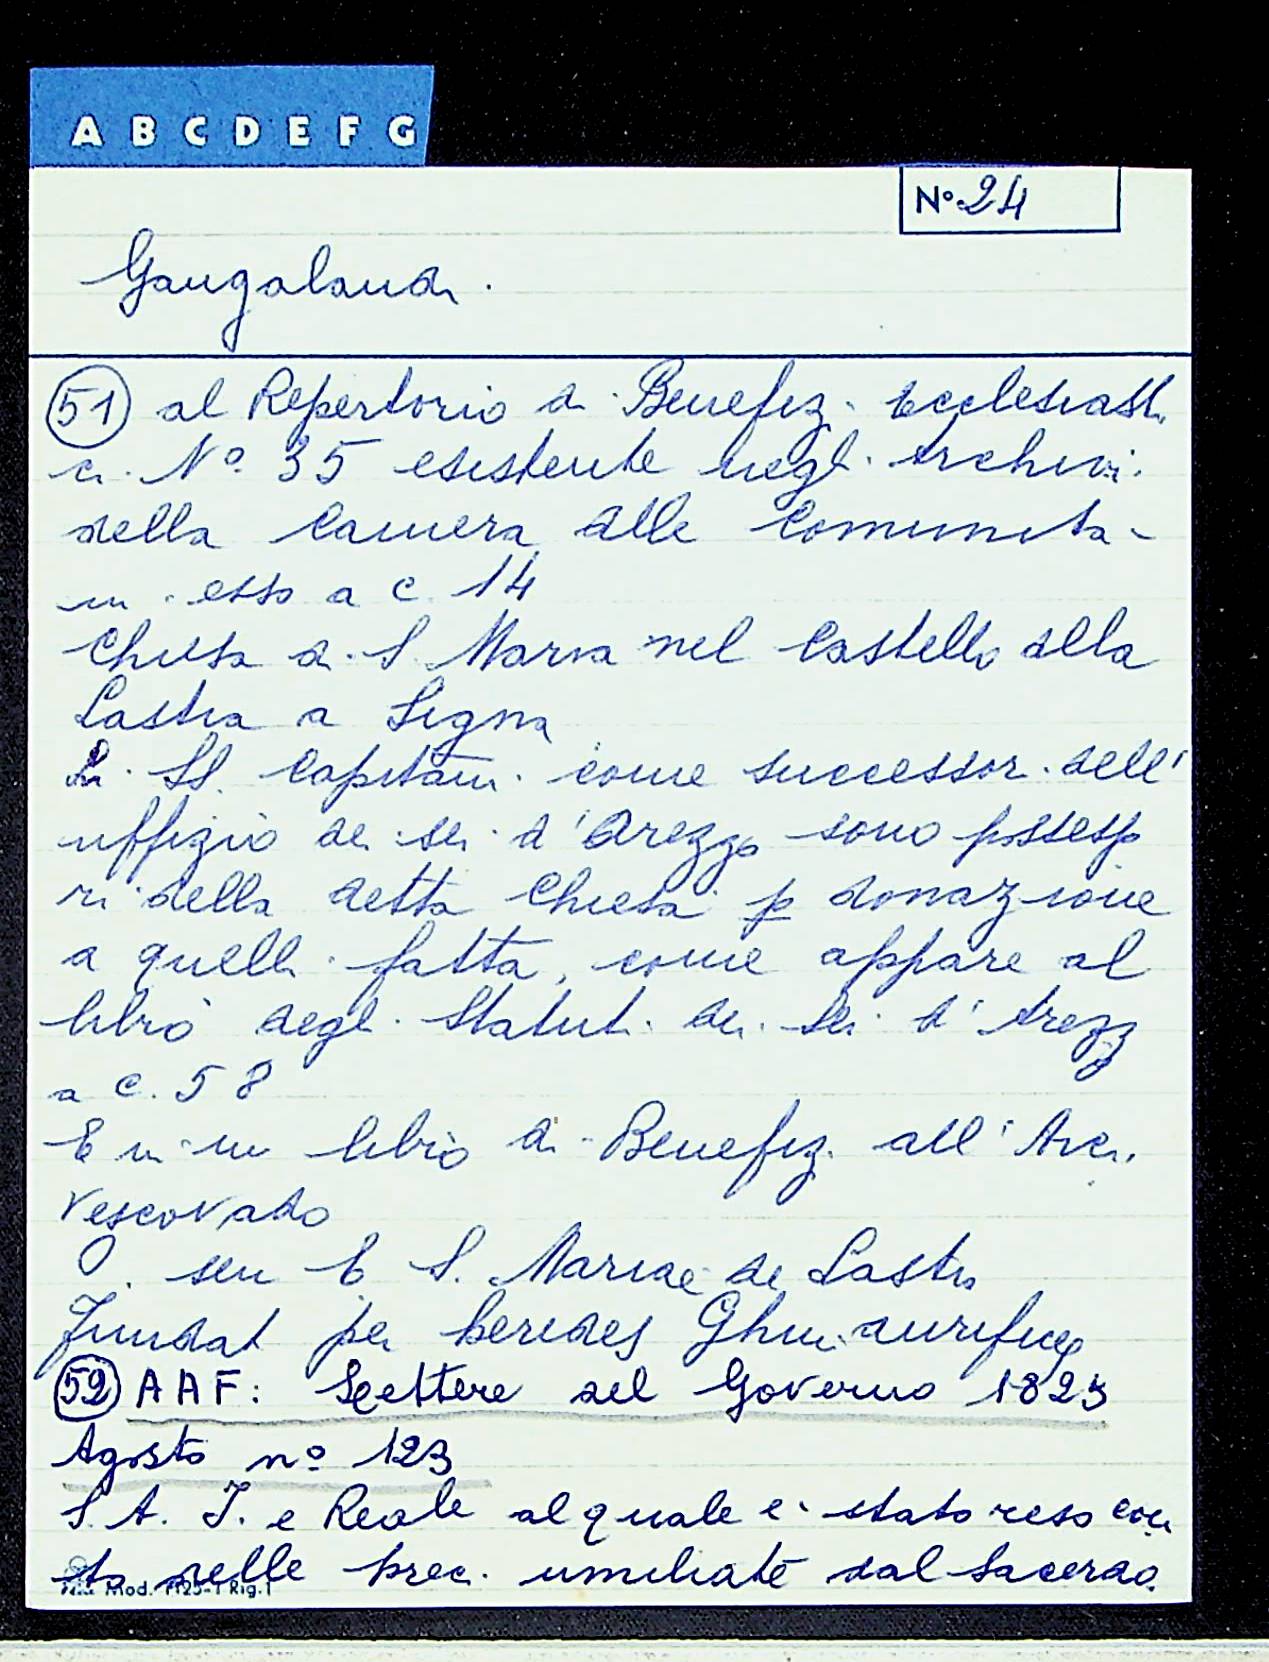 A B C D E F G
Nº 24
Gangalandi.
51 al Repertorio di Benefizi Ecclesiasti
ci Nº 35 esistente negli Archivi
della Camera delle Comunita -
in esso a c. 14
Chiesa di S. Maria nel Castello della
Lastra a Signa
Li SS. Capitani come successori dell'
uffizio dei sei d'Arezzo sono possesso
ri della detta Chiesa p donazione
a quelli fatta, come appare al
libro degli Statuti dei Sei d'Arezz
a c. 58
E in un libro di Benefizi all'Arci
vescovado
O. seu E S. Mariae de Lastra
Fundat per heredes Ghini aurifices
52 AAF: Lettere del Governo 1823
Agosto nº 123
S. A. I. e Reale al quale è stato reso con
to delle prec. umiliate dal Sacerdo
Mod. 1125-1 Rig. 1